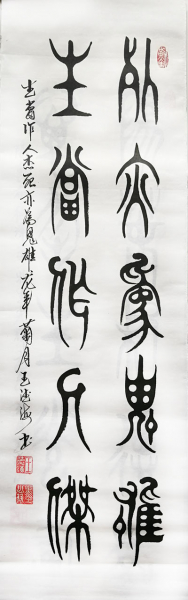 生當作人傑
死亦為鬼雄
生當作人杰死亦為鬼雄龙年菊月王书